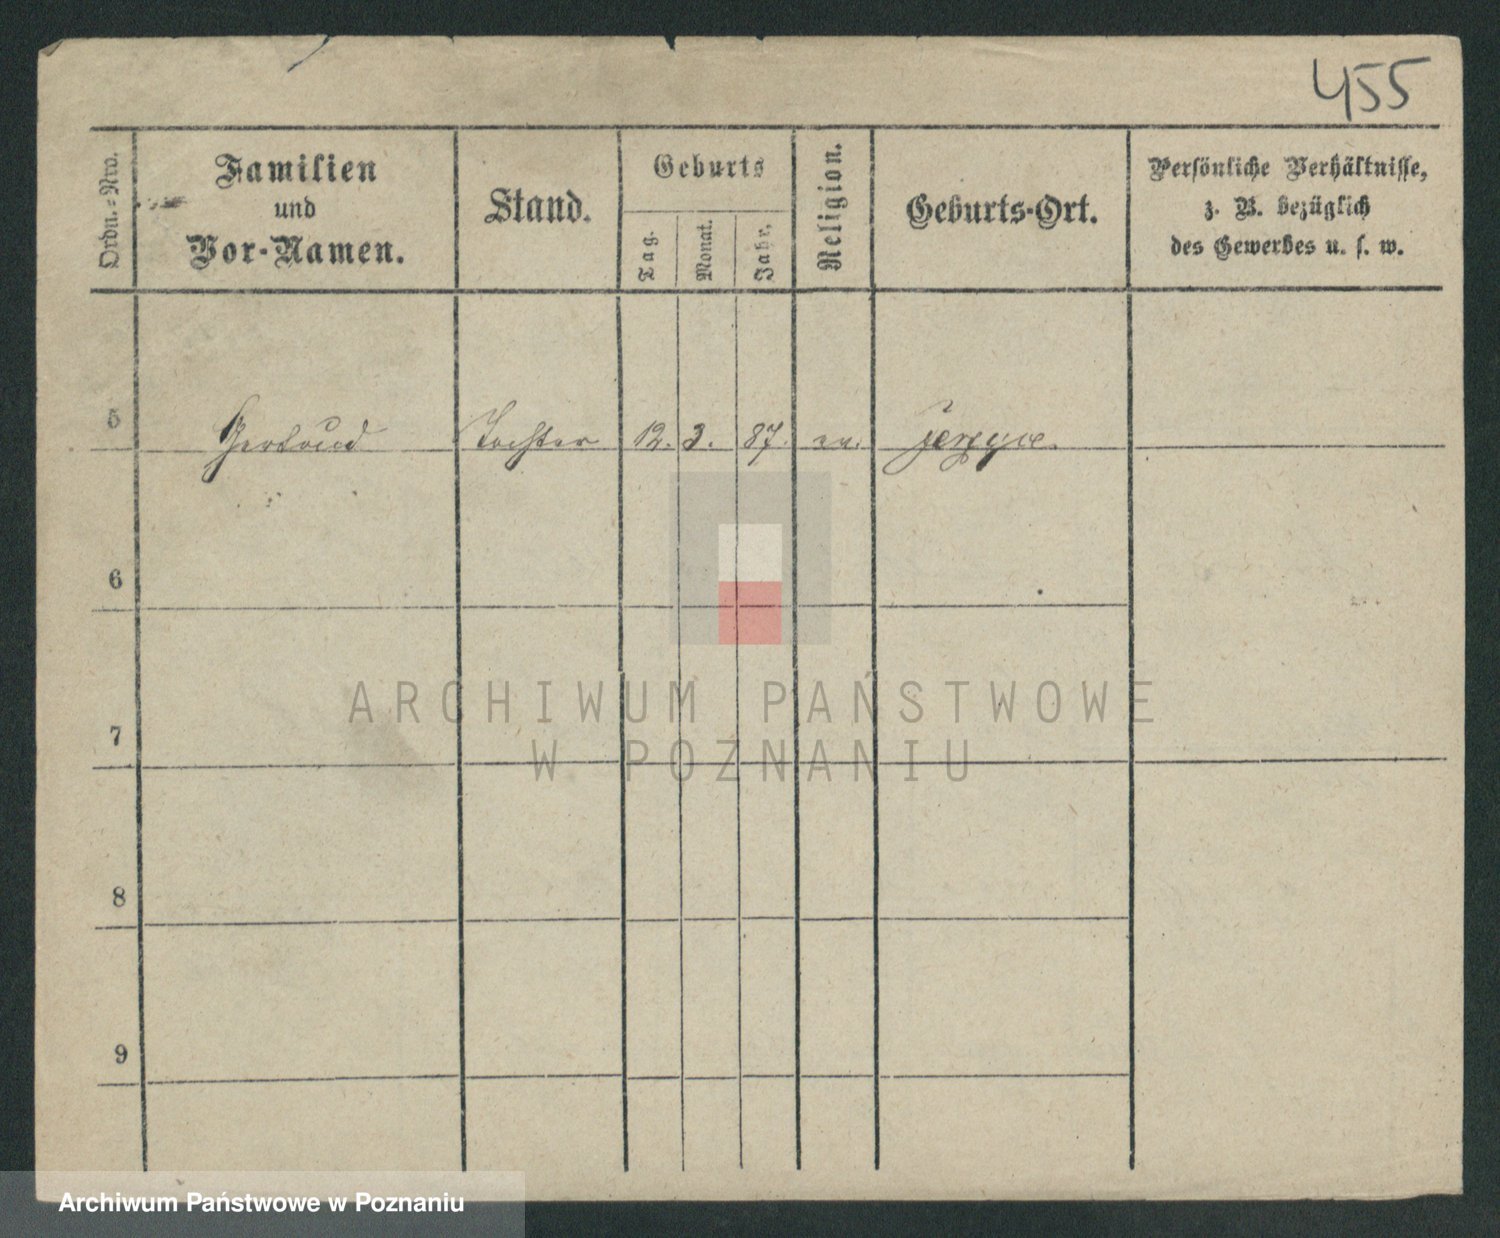 455
Ordn.-Nro.
Familien
und
Vor-Namen.
Stand.
Geburts
Tag.
Monat.
Jahr.
Religion.
Geburts-Ort.
Persönliche Verhältnisse,
z. B. bezüglich
des Gewerbes u. s. w.
5 Gertrud Tochter 12. 3. 87. ev.
6
7
8
9
ARCHIWUM PAŃSTWOWE
W POZNANIU
Archiwum Państwowe w Poznaniu